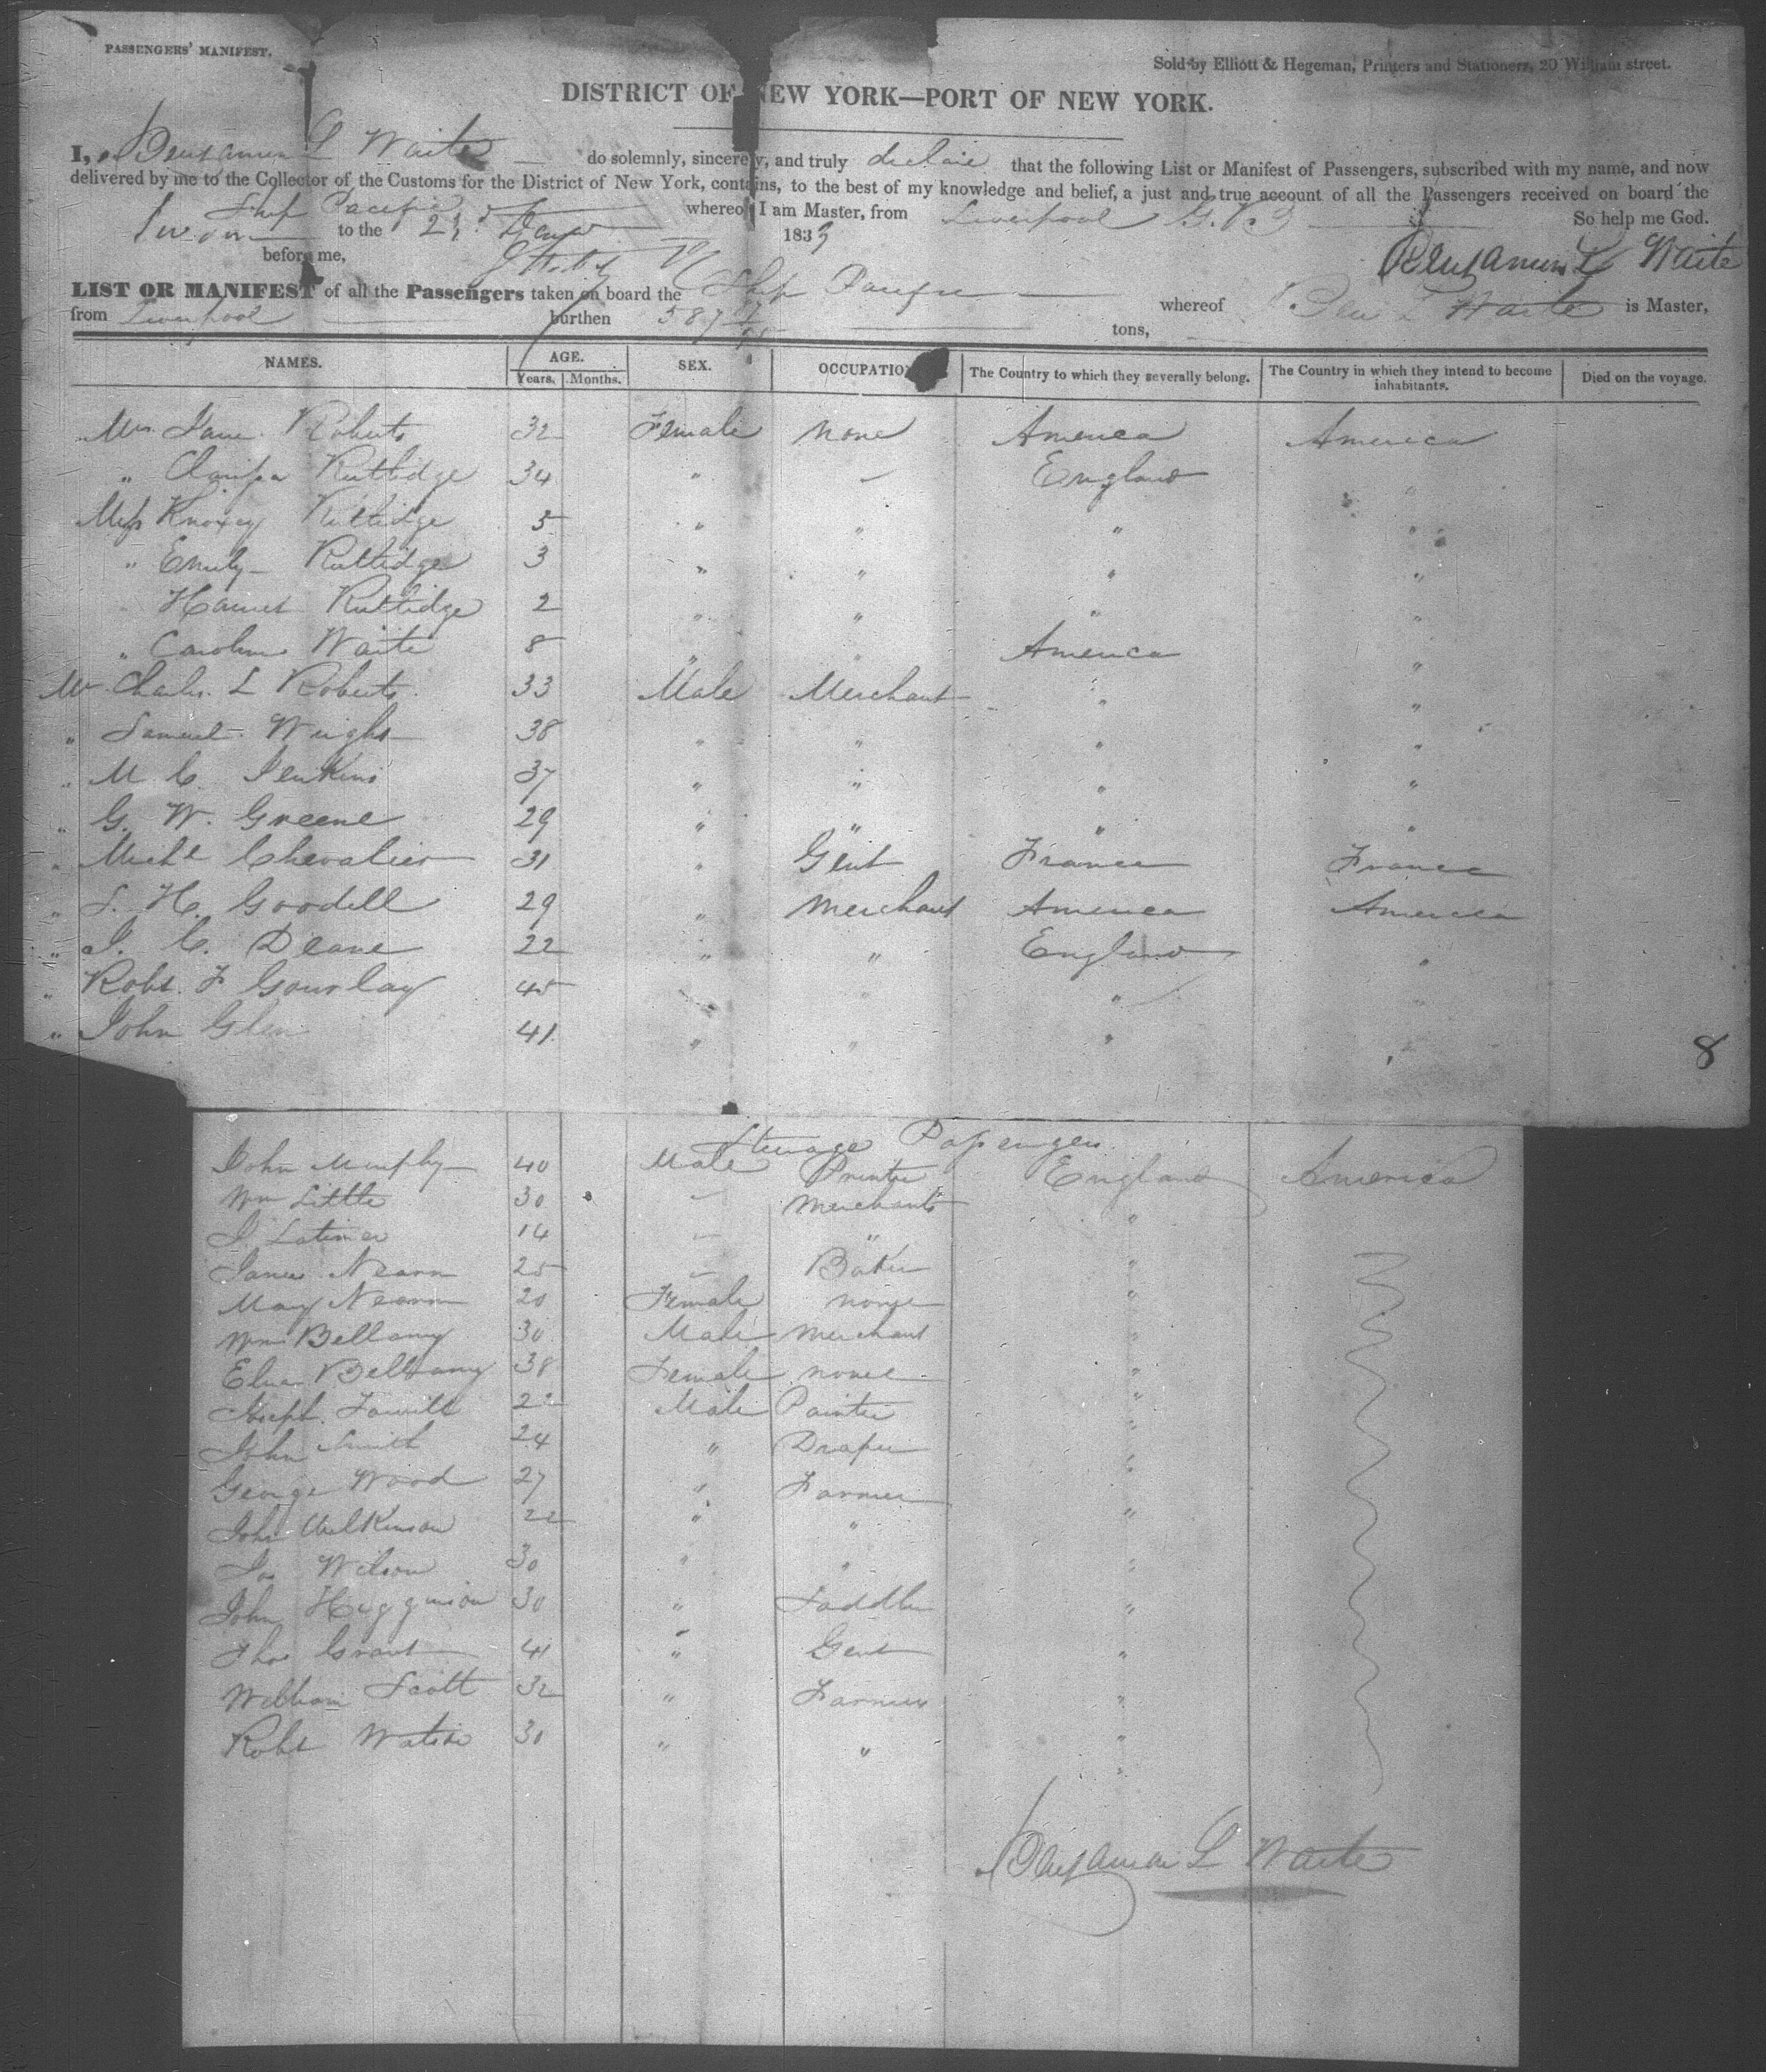 PASSENGERS' MANIFEST.
Sold by Elliott & Hegeman, Printers and Stationers, 20 William street.
DISTRICT OF NEW YORK—PORT OF NEW YORK.
I, Benjamin L Waite do solemnly, sincerely, and truly declare that the following List or Manifest of Passengers, subscribed with my name, and now
delivered by me to the Collector of the Customs for the District of New York, contains, to the best of my knowledge and belief, a just and true account of all the Passengers received on board the
Ship Pacific whereof I am Master, from Liverpool So help me God.
Sworn to the 1833
before me, Benjamin L Waite
LIST OR MANIFEST of all the Passengers taken on board the Ship Pacific whereof Ben L Waite is Master,
from Liverpool burthen 587 tons,
NAMES. AGE. SEX. OCCUPATION The Country to which they severally belong. The Country in which they intend to become inhabitants. Died on the voyage.
Years. Months.
Mrs Jane Roberts 32 Female None America America
" Rutlidge 34 " England "
Miss Rutlidge 5 " " " "
" Emily Rutlidge 3 " " " "
Harriet Rutlidge 2 " " " "
" Caroline Waite 8 " " America "
Mr Charles L Roberts 33 Male Merchant " "
" Samuel Wright 38 " " " "
" M C. Jenkins 37 " " " "
" G. W. Greene 29 " " " "
" Michl Chevalier 31 " Gent France France
" S. H. Goodell 29 " Merchant America America
" J. C. Deane 22 " " England "
" Robt. F Gourlay 45 " " " "
" John Glen 41 " " "
8
Steerage Passengers
John Murphy 40 Male England America
Wm Little 30 Merchants "
J Latimer 14 "
James Nearn 25 Baker "
Mary Nearn 20 Female none "
Wm Bellamy 30 Male Merchant "
Bellamy 38 Female none "
Joseph 22 Male Painter "
John Smith 24 " Draper "
George Wood 27 " Farmer "
John Wilkinson 22 " " "
Jos Wilson 30 " " "
John Higginson 30 " Saddler "
Thos Grant 41 " Gent "
William Scott 32 " Farmer "
Robt Watson 30 " " "
Benjamin L Waite